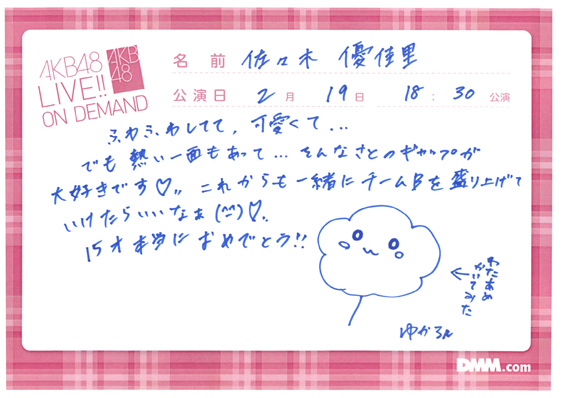 AKB48
LIVE!!
ON DEMAND
AKB
48
名前 佐々木 優佳里
公演日 2月 19日 18:30 公演
ふわふわしてて、可愛くて...
でも熱い一面もあって... そんなさとのギャップが
大好きです♡!! これからも一緒にチームBを盛り上げて
いけたらいいなぁ(^^)♡.
15才本当におめでとう!!
←わたあめ
かいてみた
ゆかるん
DMM.com